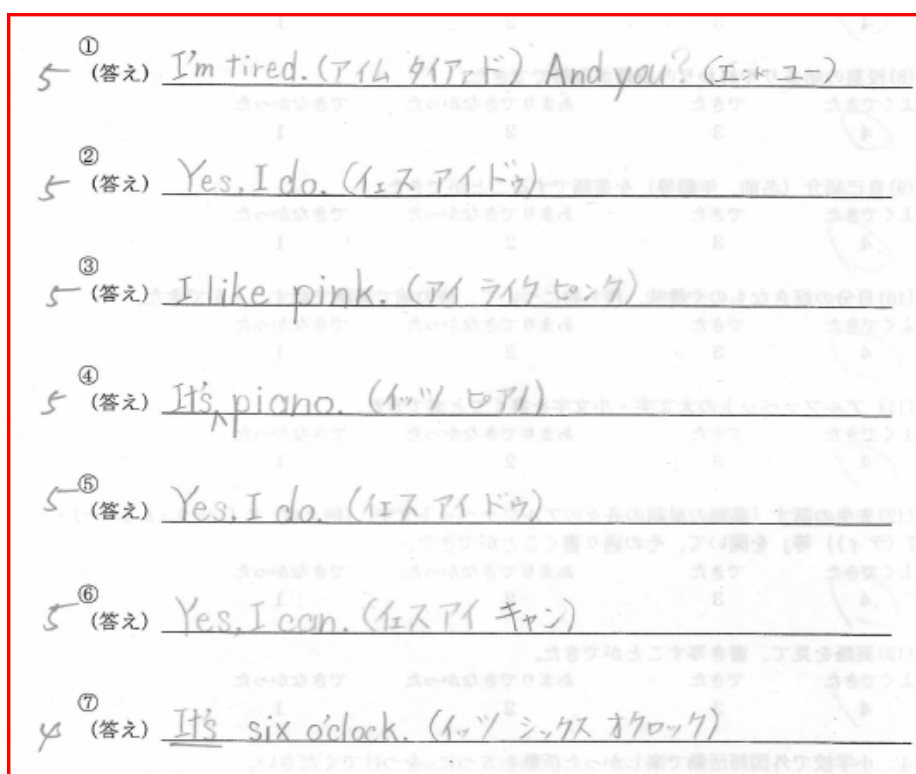 ①
5 (答え) I'm tired. (アイム タイアァド) And you? (エンド ユー)
②
5 (答え) Yes, I do. (イエス アイ ドゥ)
③
5 (答え) I like pink. (アイ ライク ピンク)
④
5 (答え) It's ^ piano. (イッツ ピアノ)
⑤
5 (答え) Yes, I do. (イエス アイ ドゥ)
⑥
5 (答え) Yes, I can. (イエス アイ キャン)
⑦
4 (答え) It's six o'clock. (イッツ シックス オクロック)